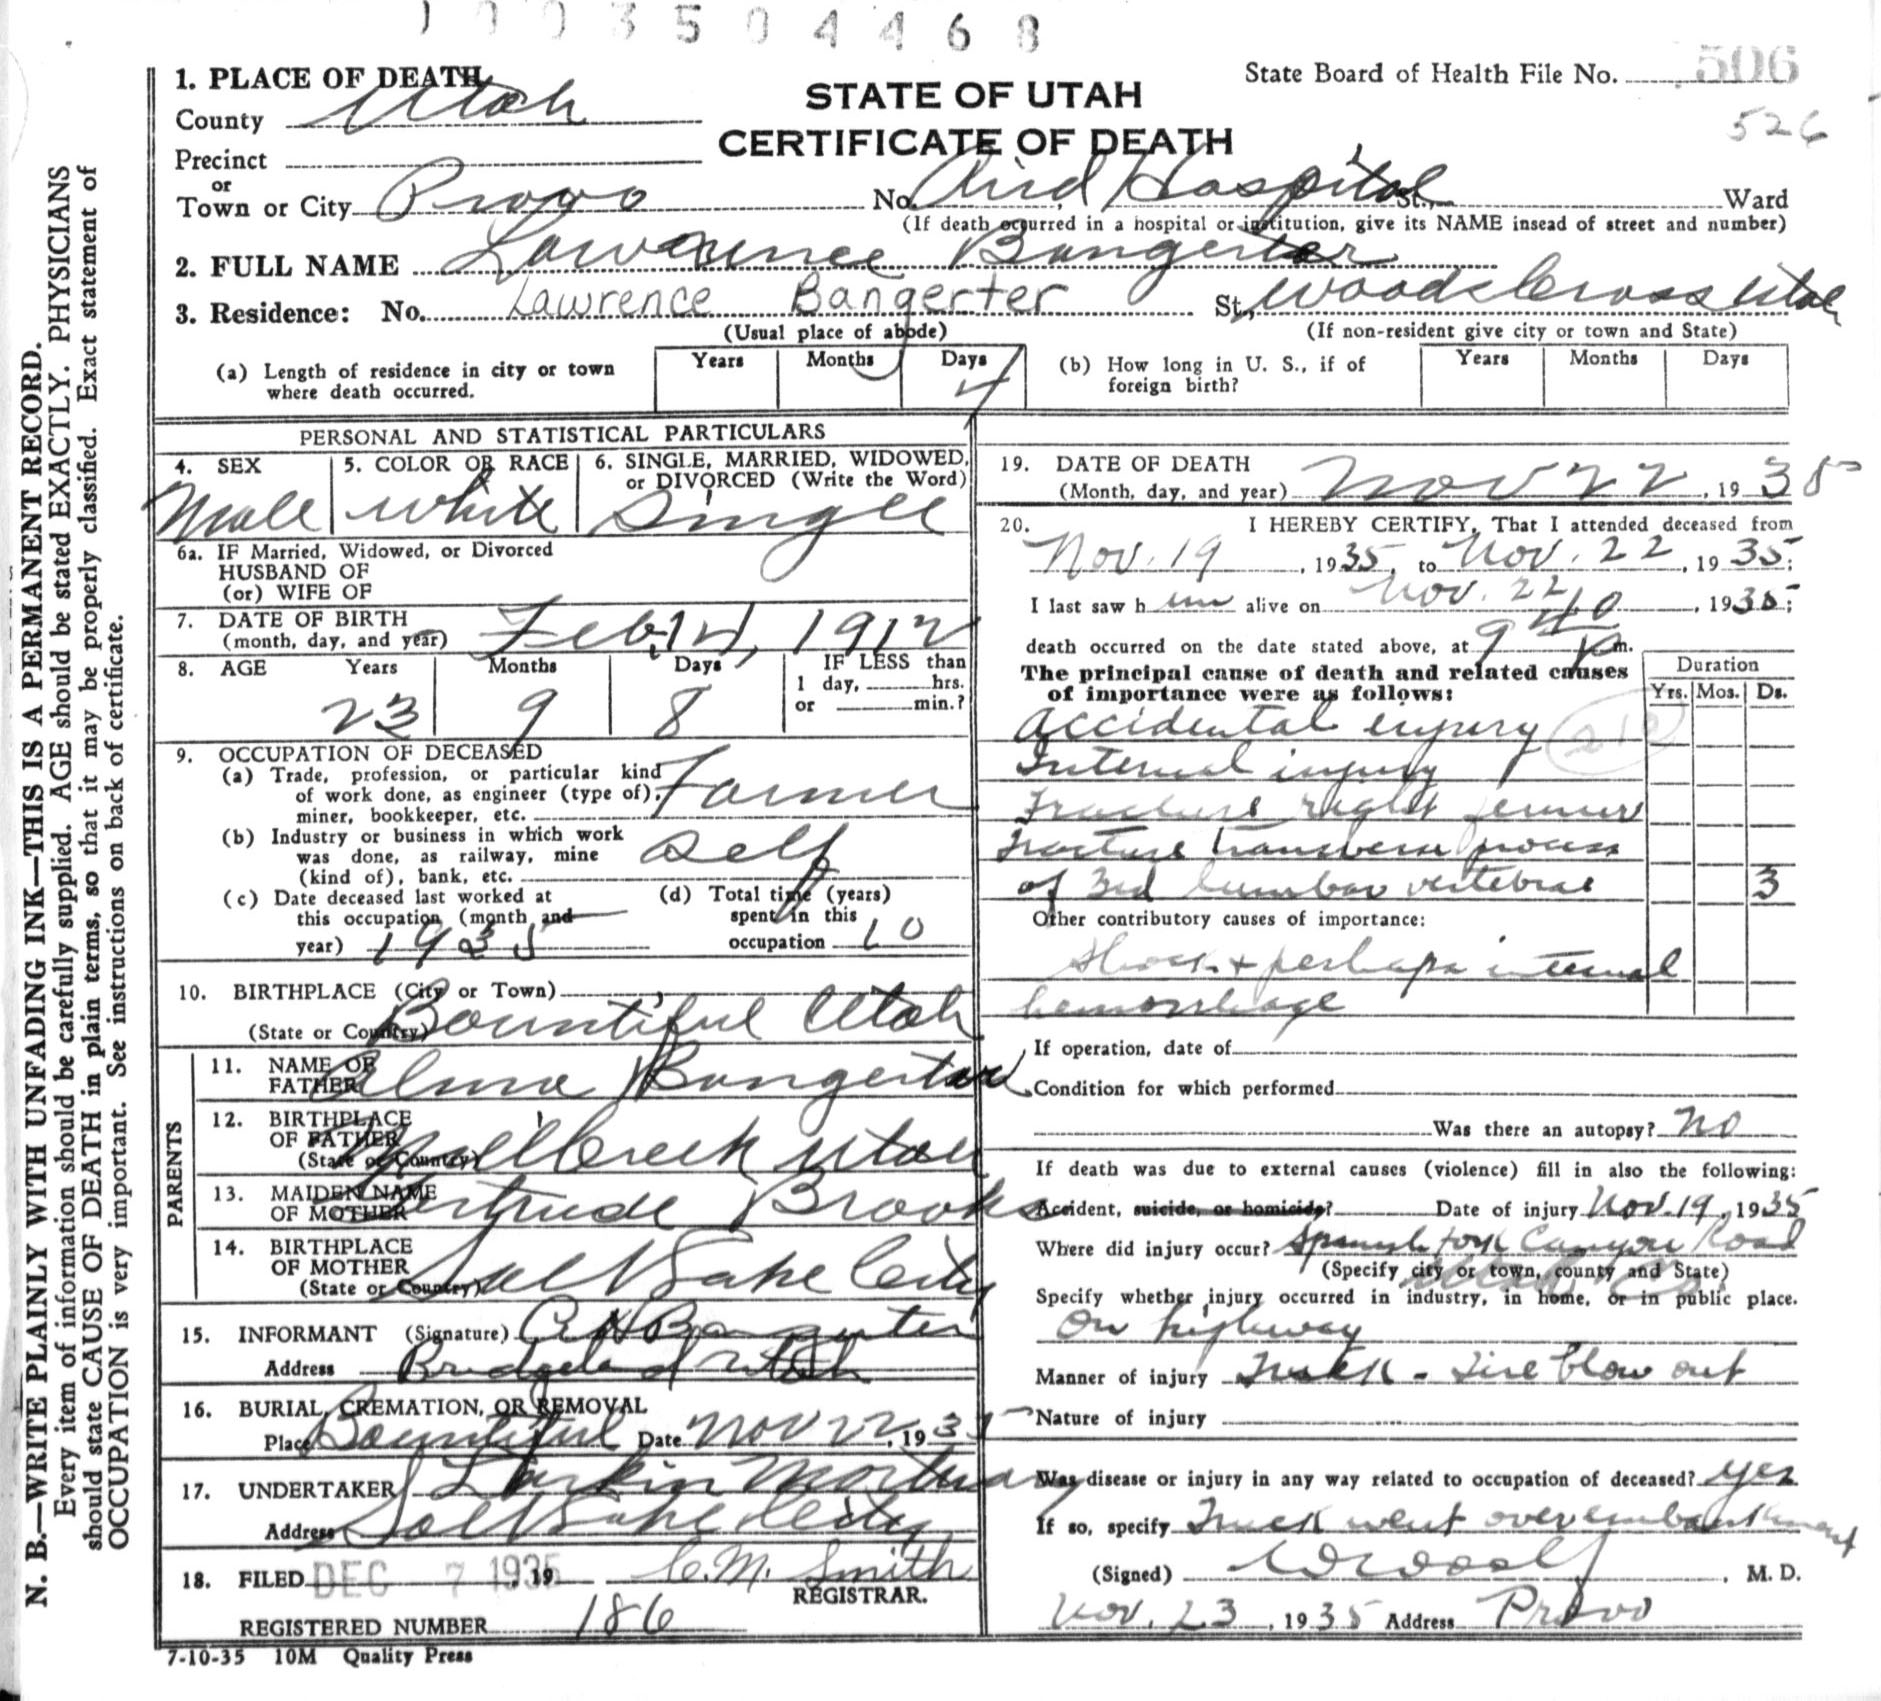 1003504468
506
State Board of Health File No.
526
STATE OF UTAH
CERTIFICATE OF DEATH
1. PLACE OF DEATH
County Utah
Precinct
or
Town or City Provo No. Aird Hospital St., Ward
(If death occurred in a hospital or institution, give its NAME insead of street and number)
2. FULL NAME Lawrence Bangerter
3. Residence: No. Lawrence Bangerter St., Woods Cross Utah
(Usual place of abode) (If non-resident give city or town and State)
(a) Length of residence in city or town where death occurred. Years Months Days 4
(b) How long in U. S., if of foreign birth? Years Months Days
PERSONAL AND STATISTICAL PARTICULARS
4. SEX Male
5. COLOR OR RACE white
6. SINGLE, MARRIED, WIDOWED, or DIVORCED (Write the Word) Single
6a. IF Married, Widowed, or Divorced
HUSBAND OF
(or) WIFE OF
7. DATE OF BIRTH
(month, day, and year) Feb. 14, 1912
8. AGE Years 23 Months 9 Days 8
IF LESS than
1 day, hrs.
or min.?
9. OCCUPATION OF DECEASED
(a) Trade, profession, or particular kind
of work done, as engineer (type of), Farmer
miner, bookkeeper, etc.
(b) Industry or business in which work
was done, as railway, mine Self
(kind of), bank, etc.
(c) Date deceased last worked at
this occupation (month and
year) 1935
(d) Total time (years)
spent in this
occupation 10
10. BIRTHPLACE (City or Town)
(State or Country) Bountiful Utah
PARENTS
11. NAME OF
FATHER Alma Bangerter
12. BIRTHPLACE
OF FATHER Mill Creek Utah
(State or Country)
13. MAIDEN NAME
OF MOTHER Gertrude Brooks
14. BIRTHPLACE
OF MOTHER Salt Lake City
(State or Country)
15. INFORMANT (Signature) Bangerter
Address Bridgeland Utah
16. BURIAL, CREMATION, OR REMOVAL
Place Bountiful Date Nov 22, 1935
17. UNDERTAKER Larkin Mortuary
Address Salt Lake City
18. FILED DEC 7 1935, 19 C.M. Smith
REGISTRAR.
REGISTERED NUMBER 186
7-10-35 10M Quality Press
19. DATE OF DEATH
(Month, day, and year) Nov 22, 1935
20. I HEREBY CERTIFY, That I attended deceased from
Nov. 19, 1935, to Nov. 22, 1935;
I last saw him alive on Nov. 22, 1935;
death occurred on the date stated above, at 9 40 p m.
The principal cause of death and related causes
of importance were as follows:
Duration
Yrs. Mos. Ds.
Accidental injury
Internal injury
Fracture right femur
Fracture transverse process
of 3rd lumbar vertebrae 3
Other contributory causes of importance:
Shock + perhaps internal
hemorrhage
If operation, date of
Condition for which performed
Was there an autopsy? No
If death was due to external causes (violence) fill in also the following:
Accident, suicide, or homicide? Date of injury Nov. 19, 1935
Where did injury occur? Spanish Fork Canyon Road
(Specify city or town, county and State)
Utah Co.
Specify whether injury occurred in industry, in home, or in public place.
On highway
Manner of injury Truck - Tire blow out
Nature of injury
Was disease or injury in any way related to occupation of deceased? Yes
If so, specify Truck went over embankment
(Signed) , M. D.
Nov. 23, 1935 Address Provo
N. B.—WRITE PLAINLY WITH UNFADING INK—THIS IS A PERMANENT RECORD.
Every item of information should be carefully supplied. AGE should be stated EXACTLY. PHYSICIANS
should state CAUSE OF DEATH in plain terms, so that it may be properly classified. Exact statement of
OCCUPATION is very important. See instructions on back of certificate.